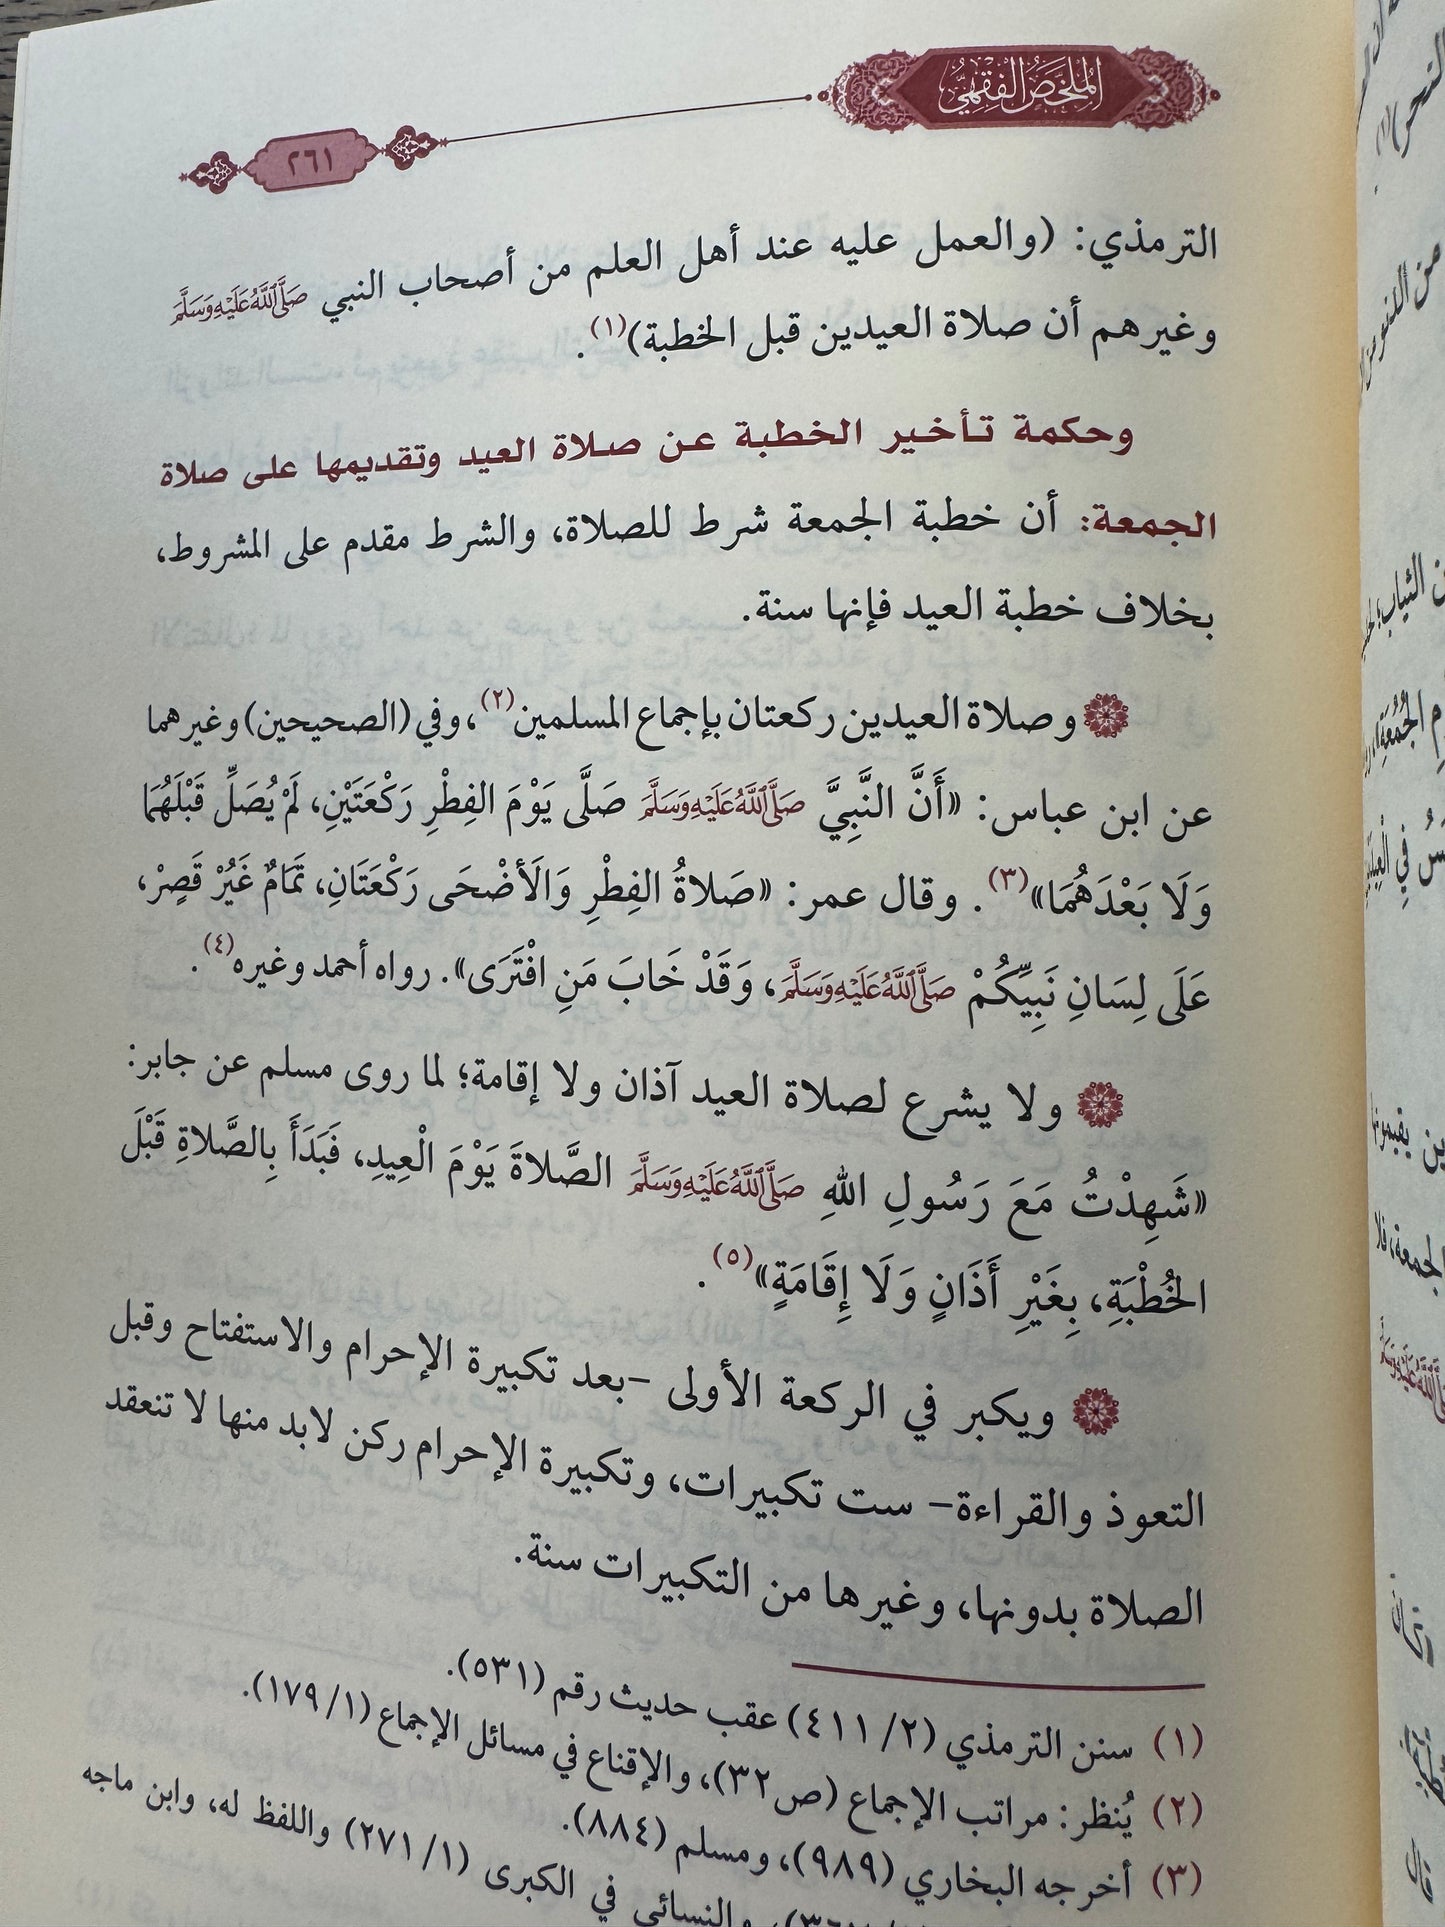 الملخص الفقهي
٢٦١
الترمذي: (والعمل عليه عند أهل العلم من أصحاب النبي صَلَّىاللَّهُعَلَيْهِوَسَلَّمَ
وغيرهم أن صلاة العيدين قبل الخطبة)(١).
وحكمة تأخير الخطبة عن صلاة العيد وتقديمها على صلاة
الجمعة: أن خطبة الجمعة شرط للصلاة، والشرط مقدم على المشروط،
بخلاف خطبة العيد فإنها سنة.
وصلاة العيدين ركعتان بإجماع المسلمين(٢)، وفي (الصحيحين) وغيرهما
عن ابن عباس: «أَنَّ النَّبِيَّ صَلَّىاللَّهُعَلَيْهِوَسَلَّمَ صَلَّى يَوْمَ الفِطْرِ رَكْعَتَيْنِ، لَمْ يُصَلِّ قَبْلَهُمَا
وَلَا بَعْدَهُمَا»(٣). وقال عمر: «صَلاةُ الفِطْرِ وَالَأضْحَى رَكْعَتَانِ، تَمَامٌ غَيُرْ قَصِرْ،
عَلَى لِسَانِ نَبِيِّكُمْ صَلَّىاللَّهُعَلَيْهِوَسَلَّمَ، وَقَدْ خَابَ مَنِ افْتَرَى». رواه أحمد وغيره(٤).
ولا يشرع لصلاة العيد آذان ولا إقامة؛ لما روى مسلم عن جابر:
«شَهِدْتُ مَعَ رَسُولِ اللهِ صَلَّىاللَّهُعَلَيْهِوَسَلَّمَ الصَّلاةَ يَوْمَ الْعِيدِ، فَبَدَأَ بِالصَّلاةِ قَبْلَ
الخُطْبَةِ، بِغَيْرِ أَذَانٍ وَلَا إِقَامَةٍ»(٥).
ويكبر في الركعة الأولى -بعد تكبيرة الإحرام والاستفتاح وقبل
التعوذ والقراءة- ست تكبيرات، وتكبيرة الإحرام ركن لابد منها لا تنعقد
الصلاة بدونها، وغيرها من التكبيرات سنة.
(١) سنن الترمذي (٢/ ٤١١) عقب حديث رقم (٥٣١).
(٢) يُنظر: مراتب الإجماع (ص٣٢)، والإقناع في مسائل الإجماع (١/ ١٧٩).
(٣) أخرجه البخاري (٩٨٩)، ومسلم (٨٨٤).
والنسائي في الكبرى (١/ ٢٧١) واللفظ له، وابن ماجه